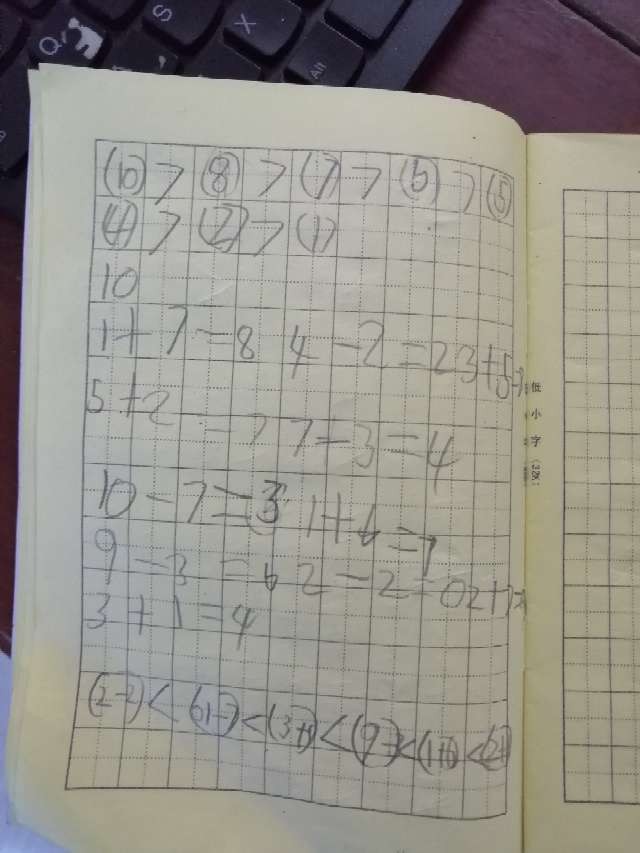 (10) > (8) > (7) > (6) > (5)
(4) > (2) > (1)
10
1+7=8 4-2=2 3+5=
5+2=7 7-3=4
10-7=3 1+6=7
9-3=6 2-2=0 2+7=
3+1=4
(2-2) < < (3+1) < < (1+6) <
低
小
字
Q
S
X
Alt